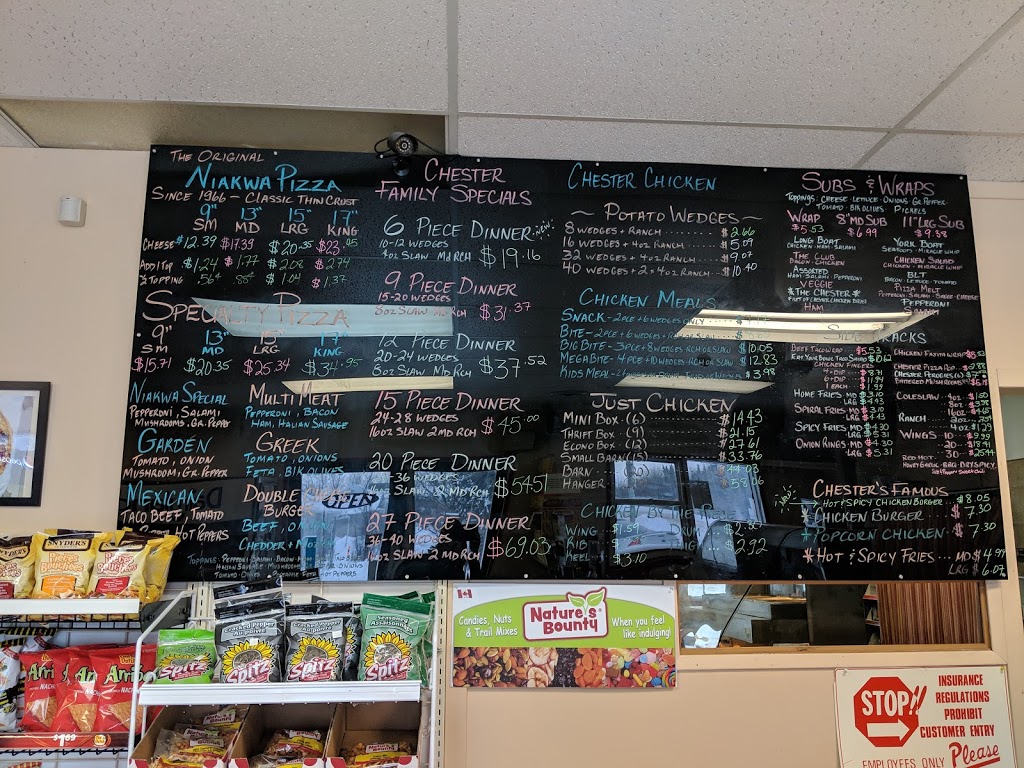 THE ORIGINAL
NIAKWA PIZZA
SINCE 1966 - CLASSIC THIN CRUST
9" 13" 15" 17"
SM MD LRG KING
CHEESE $12.39 $17.39 $20.35 $23.95
ADD 1 TOP $1.24 $1.77 $2.08 $2.74
½ TOPPING .56 .88 $1.04 $1.37
SPECIALTY PIZZA
9" 13" 15" 17"
SM MD LRG KING
$15.71 $20.35 $25.34 $34.95
NIAKWA SPECIAL
PEPPERONI, SALAMI
MUSHROOMS, GR. PEPPER
MULTI MEAT
PEPPERONI, BACON
HAM, ITALIAN SAUSAGE
GARDEN
TOMATO, ONION
MUSHROOM, GR. PEPPER
GREEK
TOMATO, ONIONS
FETA, BLK OLIVES
MEXICAN
TACO BEEF, TOMATO
HOT PEPPERS
DOUBLE
BURGER
BEEF,
CHEDDER +
CHESTER
FAMILY SPECIALS
6 PIECE DINNER NEW
10-12 WEDGES
4oz SLAW MD RCH $19.16
9 PIECE DINNER
15-20 WEDGES
8oz SLAW $31.37
12 PIECE DINNER
20-24 WEDGES
8oz SLAW MD RCH $37.52
15 PIECE DINNER
24-28 WEDGES
16oz SLAW 2 MD RCH $45.00
20 PIECE DINNER
36 WEDGES
SLAW 2 MD RCH $54.51
27 PIECE DINNER
36-40 WEDGES
16oz SLAW 2 MD RCH $69.03
CHESTER CHICKEN
~ POTATO WEDGES ~
8 WEDGES + RANCH $2.66
16 WEDGES + 4oz RANCH $5.09
32 WEDGES + 4oz RANCH $9.07
40 WEDGES + 2 4oz RANCH $10.40
CHICKEN MEALS
SNACK - 2PCE + 6 WEDGES ONLY
BITE - 2PCE + 6 WEDGES
BIG BITE - 3PCE + 8 WEDGES RCH OR SLAW $10.05
MEGABITE - 4PCE + 10 WEDGES RCH OR SLAW $12.83
KIDS MEAL $3.98
JUST CHICKEN
MINI BOX - (6) $14.43
THRIFT BOX (9) $21.15
ECONO BOX (12) $27.61
SMALL BARN (15) $33.76
BARN $44.03
HANGER $58.06
CHICKEN BY THE PIECE
WING $1.59
RIB
$3.10
$2.92
SUBS & WRAPS
TOPPINGS: CHEESE · LETTUCE · ONIONS · GR. PEPPER
TOMATO · BLK OLIVES · PICKELS
WRAP 8" MD SUB 11" LRG SUB
$5.53 $6.99 $9.58
LONG BOAT
CHICKEN · HAM · SALAMI
YORK BOAT
SEAFOODS · MIRACLE WHIP
THE CLUB
BACON · CHICKEN
CHICKEN SALAD
CHICKEN · MIRACLE WHIP
ASSORTED
HAM · SALAMI · PEPPERONI
BLT
BACON · LETTUCE · TOMATO
VEGGIE
PIZZA MELT
PEPPERONI · SALAMI · SAUCE · CHEESE
*THE CHESTER*
PEPPERONI
HAM
BEEF TACO WRAP $5.53
CHICKEN FINGERS
HOME FRIES MD $3.10
SPIRAL FRIES MD
SPICY FRIES MD $4.30
LRG $5.31
ONION RINGS MD $4.30
LRG $5.31
COLESLAW
RANCH
WINGS
HONEY GARLIC · BBQ · DRY SPICY
NEW
CHESTER'S FAMOUS
HOT + SPICY CHICKEN BURGER $8.05
CHICKEN BURGER $7.30
POPCORN CHICKEN $7.30
*HOT & SPICY FRIES MD $4.99
LRG $6.07
OPEN
SNYDER'S
SNYDER'S
Cracked Pepper
Spitz
Spitz
Spitz
Spitz
$1.69
Candies, Nuts
& Trail Mixes
Nature's
Bounty
When you feel
like indulging!
Nature's
Bounty
STOP!!
INSURANCE
REGULATIONS
PROHIBIT
CUSTOMER ENTRY
EMPLOYEES ONLY Please